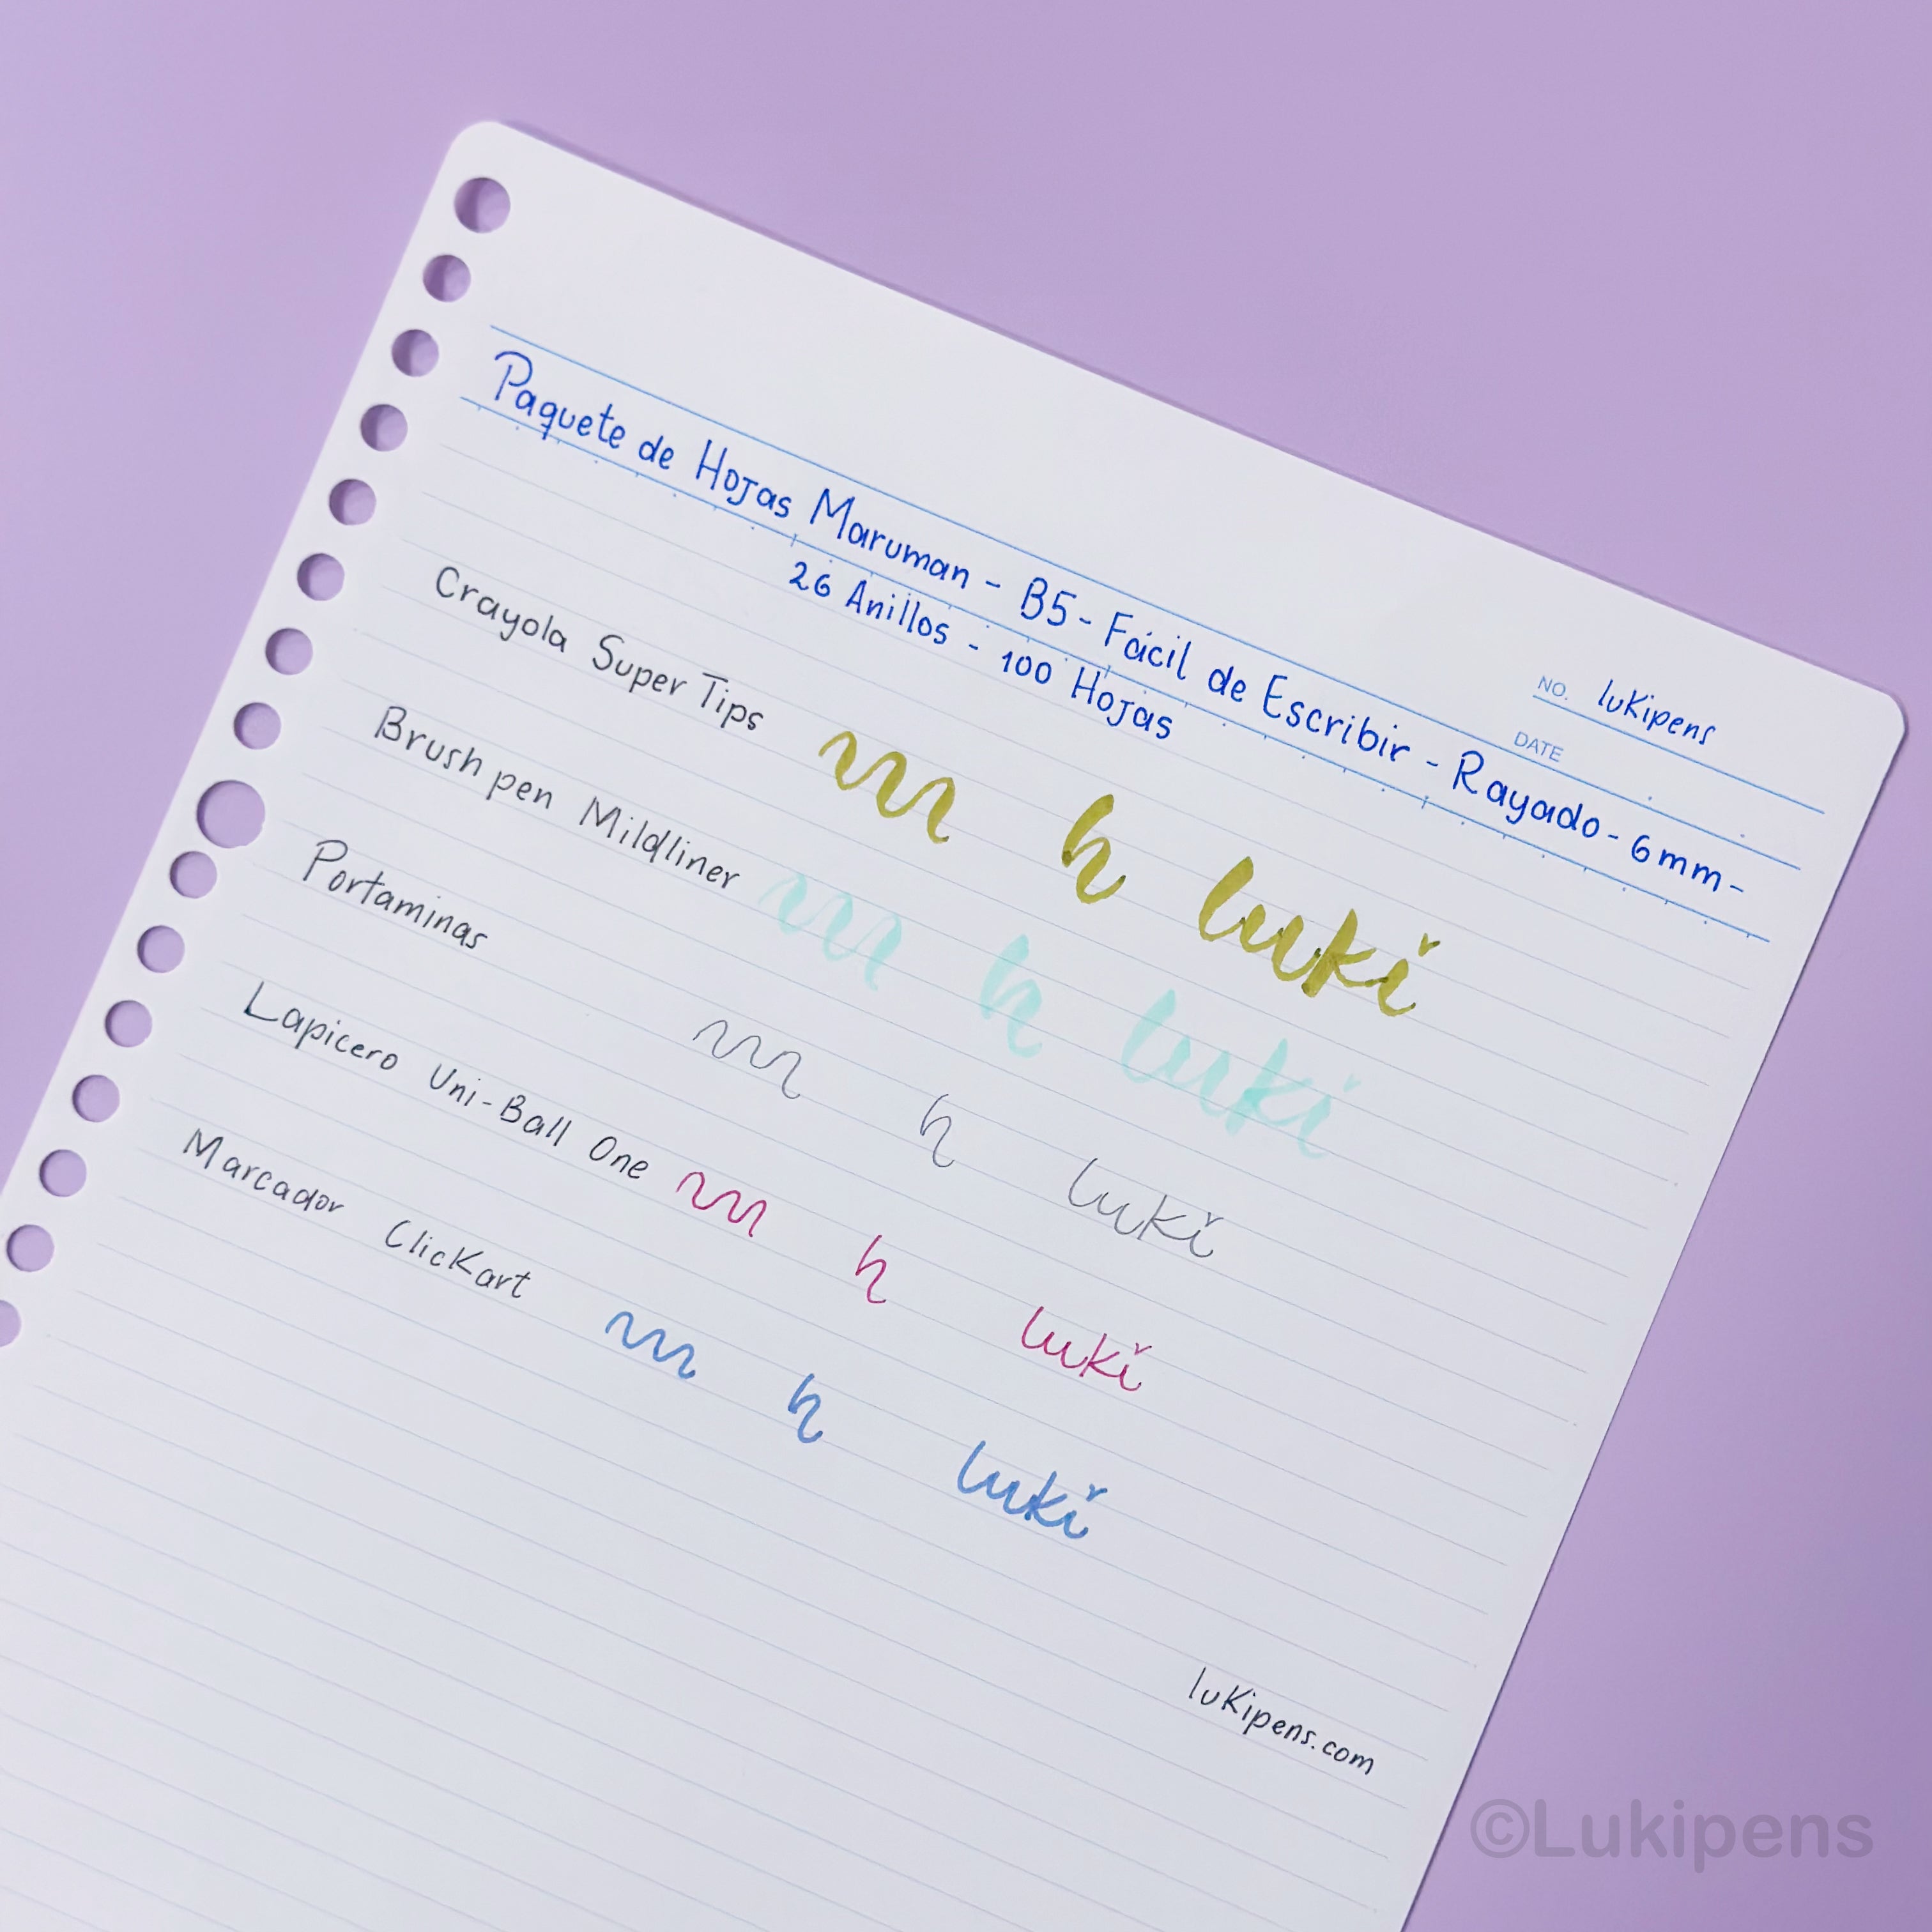 NO. luKipens
DATE
Paquete de Hojas Maruman - B5 - Fácil de Escribir - Rayado - 6mm -
26 Anillos - 100 Hojas
Crayola Super Tips h luki
Brush pen Mildliner h luki
Portaminas h luki
Lapicero Uni-Ball One h luki
Marcador ClicKart h luki
luKipens.com
©Lukipens